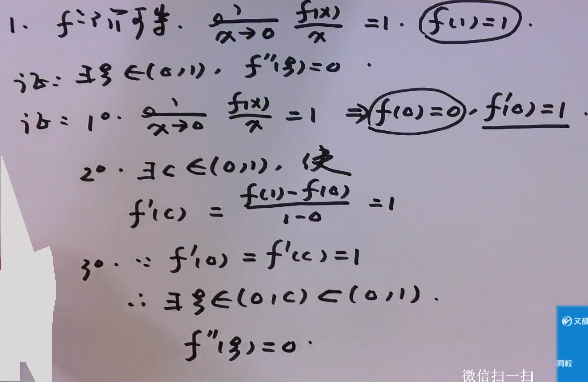 1. f二阶可导. lim x→0 f(x)/x =1. f(1)=1.
证: ∃ξ∈(0,1), f''(ξ)=0.
证: 1°. lim x→0 f(x)/x = 1 ⇒ f(0)=0, f'(0)=1.
2°. ∃c∈(0,1), 使
f'(c) = f(1)-f(0)/1-0 =1
3°. ∵ f'(0)=f'(c)=1
∴ ∃ξ∈(0,c)⊂(0,1).
f''(ξ)=0.
文都
网校
微信扫一扫